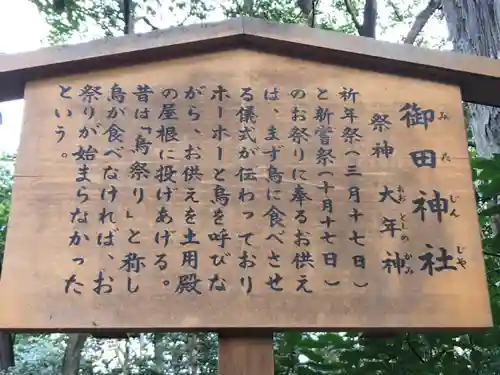 御田神社
みた じんじや
祭神 大年神
おお としの かみ
祈年祭(三月十七日)
と新嘗祭(十月十七日)
のお祭りに奉るお供え
は、まず烏に食べさせ
る儀式が伝わっており
ホーホーと烏を呼びな
がら、お供えを土用殿
の屋根に投げあげる。
昔は「烏祭り」と称し
烏が食べなければ、お
祭りが始まらなかった
という。